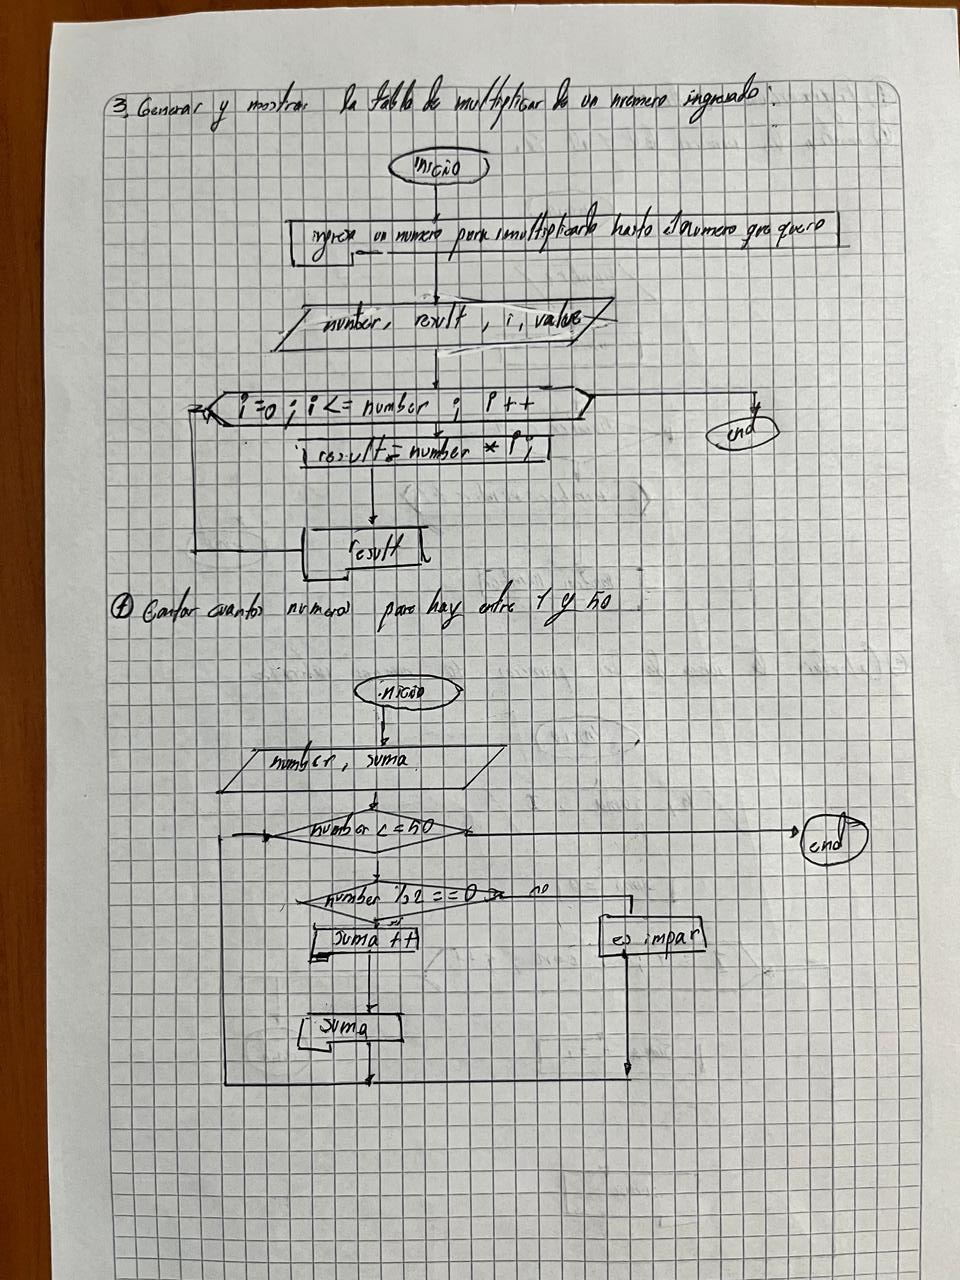 3. Generar y mostrar la tabla de multiplicar de un nremero ingresado:
inicio
ingresa un numero para multiplicarlo hasta el numero que quero
number, result, i, value
i=0; i <= number ; i++
end
result = number * i;
result
④ Contar cuantos numeros pares hay entre 1 y 50
inicio
number, suma
number <= 50
end
number % 2 == 0
no
si
suma ++
es impar
suma